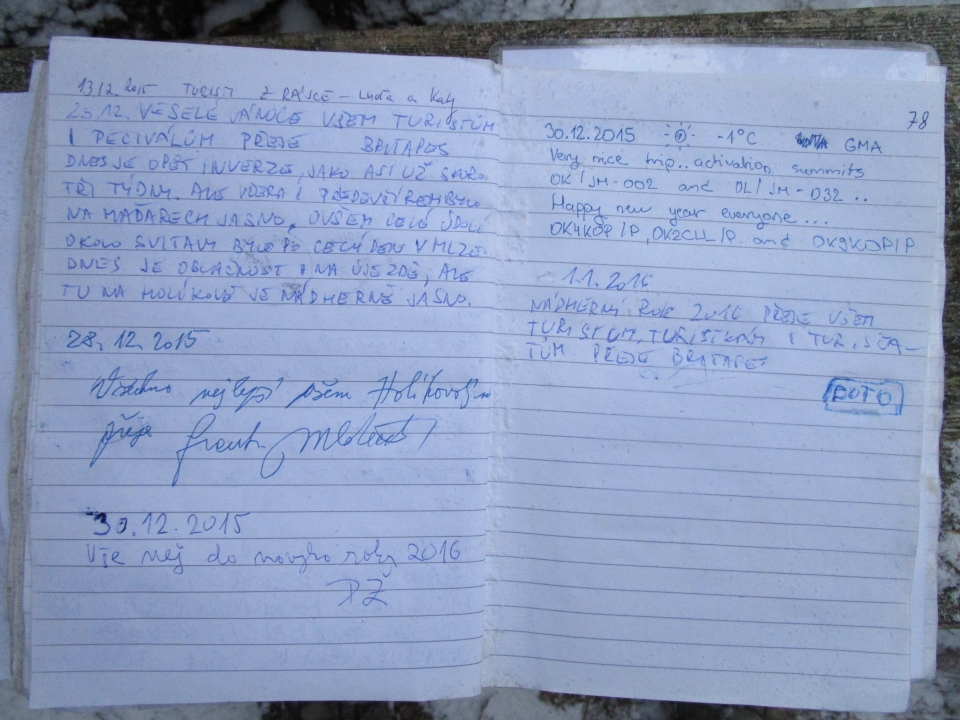 13.12. 2015 TURISTI Z RÁJCE – Luďa a Katy
25.12. VESELÉ VÁNOCE VŠEM TURISTŮM
I PECIVÁLŮM PŘEJE BRŤAPES
DNES JE OPĚT INVERZE, JAKO ASI UŽ SKORO
TŘI TÝDNY. ALE VČERA I PŘEDEVČÍREM BYLO
NA MAĎARECH JASNO, OVŠEM CELÉ ÚDOLÍ
OKOLO SVITAVY BYLO PO CELÝ DEN V MLZE.
DNES JE OBLAČNOST I NA ÚJEZDĚ, ALE
TU NA HOLÍKOVĚ JE NÁDHERNĚ JASNO.
28.12.2015
Všechno nejlepší všem
přeje
30.12.2015
Vše nej do nového roku 2016
PŽ
78
30.12.2015 -1°C GMA
Very nice trip.. activation summits
OK/JM-002 and OL/JM-032 ..
Happy new year everyone ...
OK4KOP/P, OK2CLL/P and OK9KOP/P
1.1.2016
NÁDHERNÝ ROK 2016 PŘEJE VŠEM
TURISTŮM, TURISTKÁM I TURISŤA-
TŮM PŘEJE BRŤAPES
FOTO